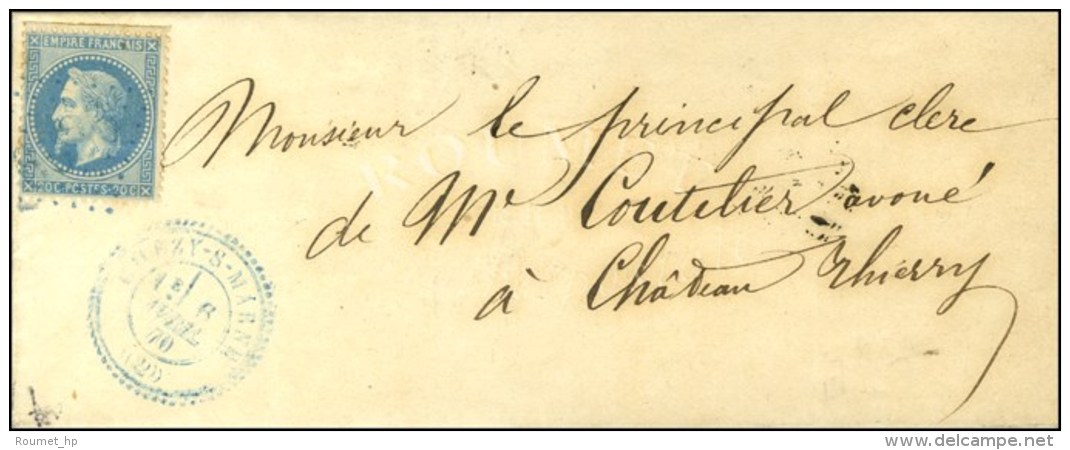 EMPIRE FRANÇAIS
20C. POSTES. 20C
Monsieur le principal clerc
de Me Coutelier avoué
à Château Thierry
CHEZY-S-MARNE
1E
6
AVRIL
70
(2)
Roumet_hp
www.delcampe.net